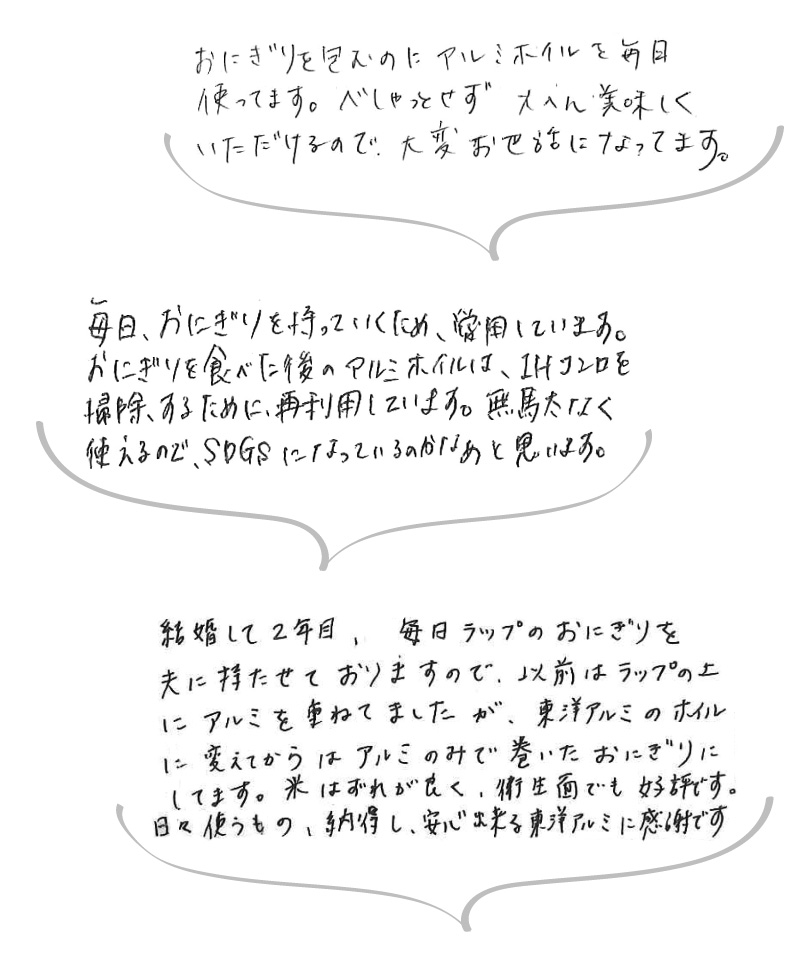 おにぎりを包むのにアルミホイルを毎日
使ってます。べしゃっとせず 大へん美味しく
いただけるので、大変お世話になってます。
毎日、おにぎりを持っていくため、愛用しています。
おにぎりを食べた後のアルミホイルは、IHコンロを
掃除、するために、再利用しています。無駄なく
使えるので、SDGSになっているのかなあと思います。
結婚して2年目、毎日ラップのおにぎりを
夫に持たせておりますので、以前はラップの上
にアルミを重ねてましたが、東洋アルミのホイル
に変えてからはアルミのみで巻いたおにぎりに
してます。米はずれが良く、衛生面でも好評です。
日々使うもの、納得し、安心出来る東洋アルミに感謝です